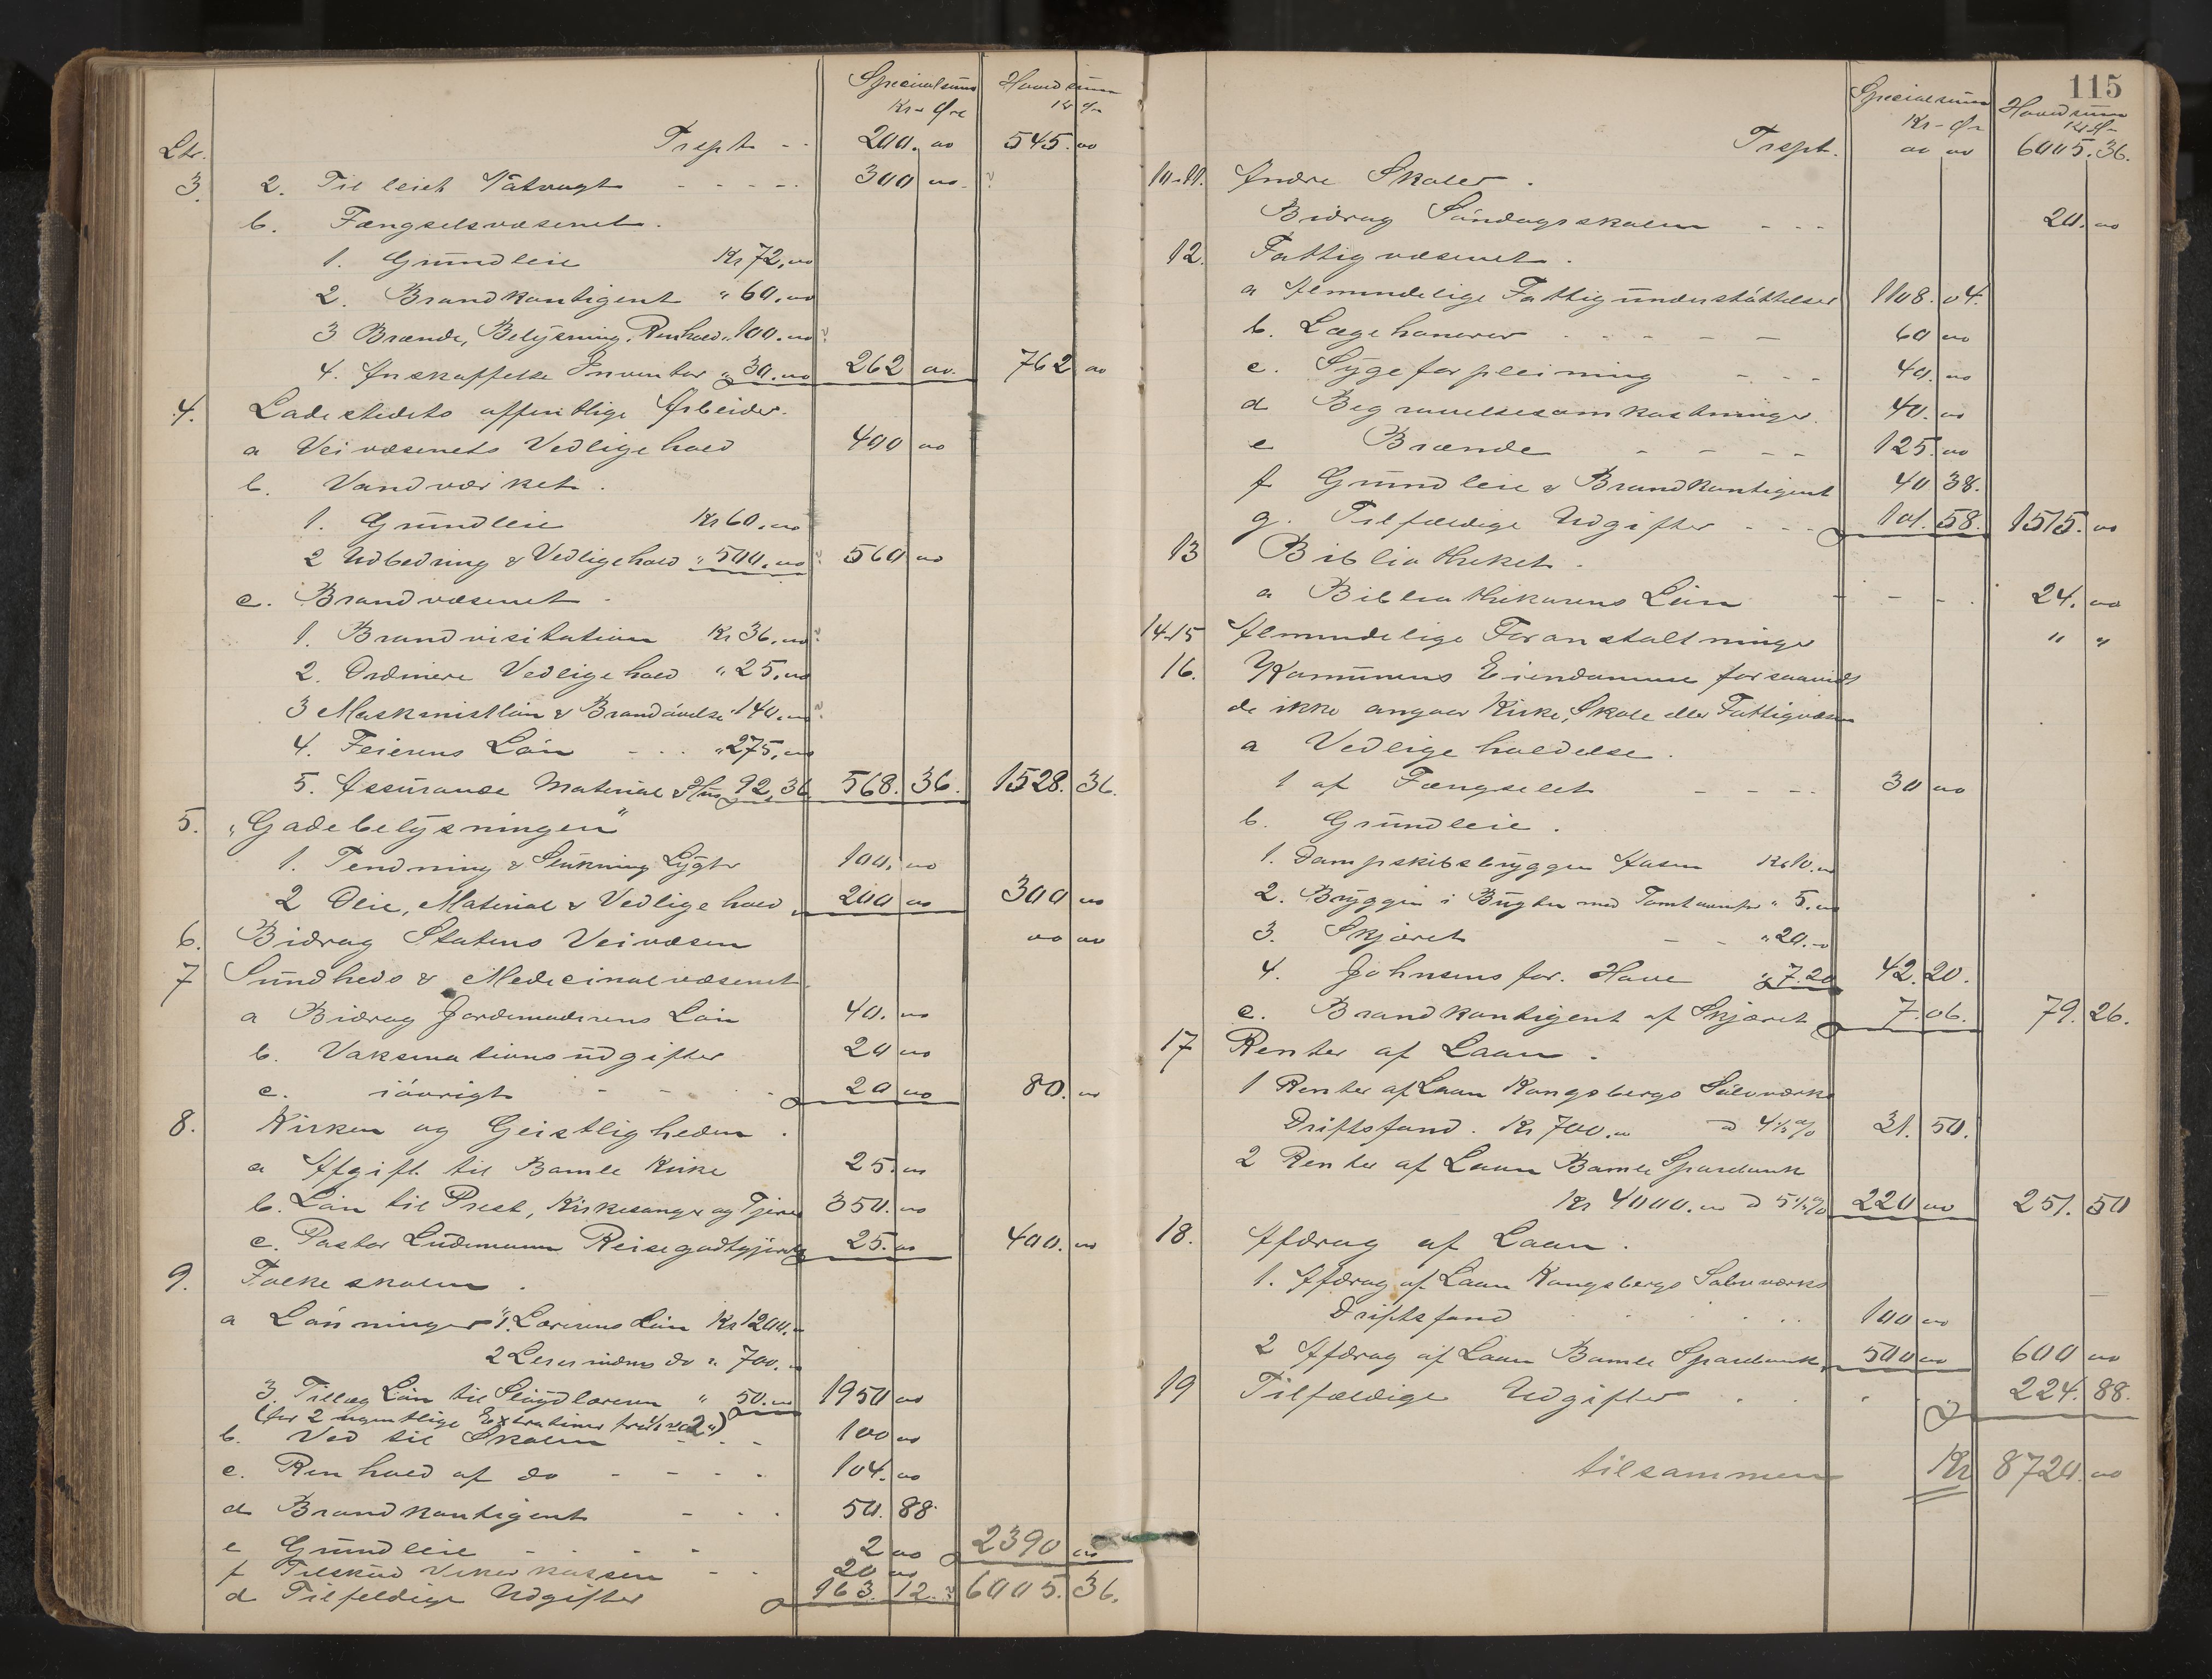 Specialsum Hovedsum
Kr Ør Kr Ør
Ltr. Trspt 200. 00 545. 00
3. 2. Til leiet Natvagt 300 00
b. Fængselsvæsenet.
1. Grundleie Kr 72,00
2. Brandkontigent " 60,00
3 Brænde, Belysning, Renhold " 100.00
4. Anskaffelse Inventar " 30.00 262 00. 762 00
4. Ladestedets offentlige Arbeider.
a Veivæsenets Vedligehold 400 00
b. Vandværket.
1. Grundleie Kr 60.00
2 Udbedring & Vedligehold " 500.00 560 00
c. Brandvæsenet
1. Brandvisitation Kr 36.00
2. Ordinære Vedligehold " 25.00
3 Maskinistløn & Brandøvelse " 140.00
4. Feierens Løn " 275,00
5. Assurance Material & Hus 92,36 568. 36. 1528. 36.
5. "Gadebelysningen"
1. Tendning & Slukning Lygter 100. 00
2 Olie, Material & Vedligehold 200 00 300 00
6. Bidrag Statens Veivæsen 00 00
7 Sundheds & Medicinalvæsenet.
a Bidrag Jordemoderens Løn 40. 00
b. Vaksinationsudgifter 20 00
c. iøvrigt 20 00 80. 00
8. Kirken og Geistligheden.
a Afgift til Bamle Kirke 25. 00
b. Løn til Prest, Kirkesanger og Tjener 350. 00
c. Pastor Ludemann Reisegodtgjørelse 25. 00 400. 00
9. Folkeskolen.
a Lønninger 1. Lærerens Løn Kr 1200.00
2 Lererindens do " 700.00
3. Tillæg Løn til Sløydlæreren " 50.00 1950 00
(for 2 ugentlige Extratimer fra 1/1
b. Ved til Skolen 100 00
c. Renhold af do 104. 00
d Brandkontigent 50. 88
e Grundleie 2 00 2390 00
f Tilskud Vikarkassen 20 00
d Tilfeldige Udgifter 163. 12. 6005. 36.
115
Specialsum Hovedsum
Kr - Ør Kr Ør
Trspt. 00 00 6005. 36.
10-11. Andre Skoler.
Bidrag Søndagsskolen 20. 00
12. Fattigvæsenet.
a Almindelige Fattigunderstøttelser 1108. 04.
b. Lægehonorar 60 00
c. Sygeforpleining 40. 00
d Begravelsesomkostninger. 40. 00
e Brænde 125. 00
f Grundleie & Brandkontigent 40 38.
g. Tilfældige Udgifter 101. 58. 1515. 00
13 Bibliotheket.
a Bibliothekarens Løn 24. 00
14-15 Almindelige Foranstaltninger " "
16. Komunens Eiendomme forsaavidt
de ikke angaar Kirke, Skole eller Fattigvæsen
a Vedligeholdelse.
1 af Fængselet 30 00
b. Grundleie.
1. Dampskibsbryggen Aasen Kr 10.00
2. Bryggen i Bugten med Tomt " 5.00
3. Skjæret " 20.00
4. Johnsens for. Have " 7.20 42. 20.
c. Brandkontigent af Skjæret 7. 06. 79. 26.
17 Renter af Laan.
1 Renter af Laan Kongsbergs Sølvværks
Driftsfond. Kr 700.00 a 4½% 31. 50.
2 Renter af Laan Bamle Sparebank
Kr 4000.00 a 5½% 220 00 251. 50
18. Afdrag af Laan.
1. Afdrag af Laan Kongsbergs Sølvværks
Driftsfond 100 00
2 Afdrag af Laan Bamle Sparebank 500 00 600 00
19 Tilfældige Udgifter 224. 88.
tilsammen Kr 8720. 00